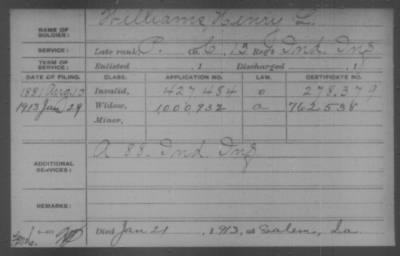 NAME OF SOLDIER: Williams, Henry L.
SERVICE: Late rank, P. Co. C, 13 Reg't Ind. Inf
TERM OF SERVICE: Enlisted , 1 Discharged , 1
DATE OF FILING. CLASS. APPLICATION NO. LAW. CERTIFICATE NO.
1881 Aug 13 Invalid, 427.484 278.379
1913 Jan 29 Widow, 1000,932 a 762.538
Minor,
ADDITIONAL SERVICES: A 88. Ind. Inf
REMARKS:
Died Jan 21 , 1913, at Salem, Ia.